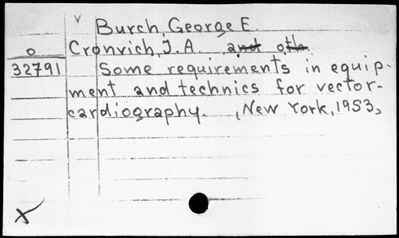 v Burch, George E
o Cronvich, J.A. and oth.
32791 Some requirements in equip-
ment and technics for vector-
cardiography. , New York, 1953,
x